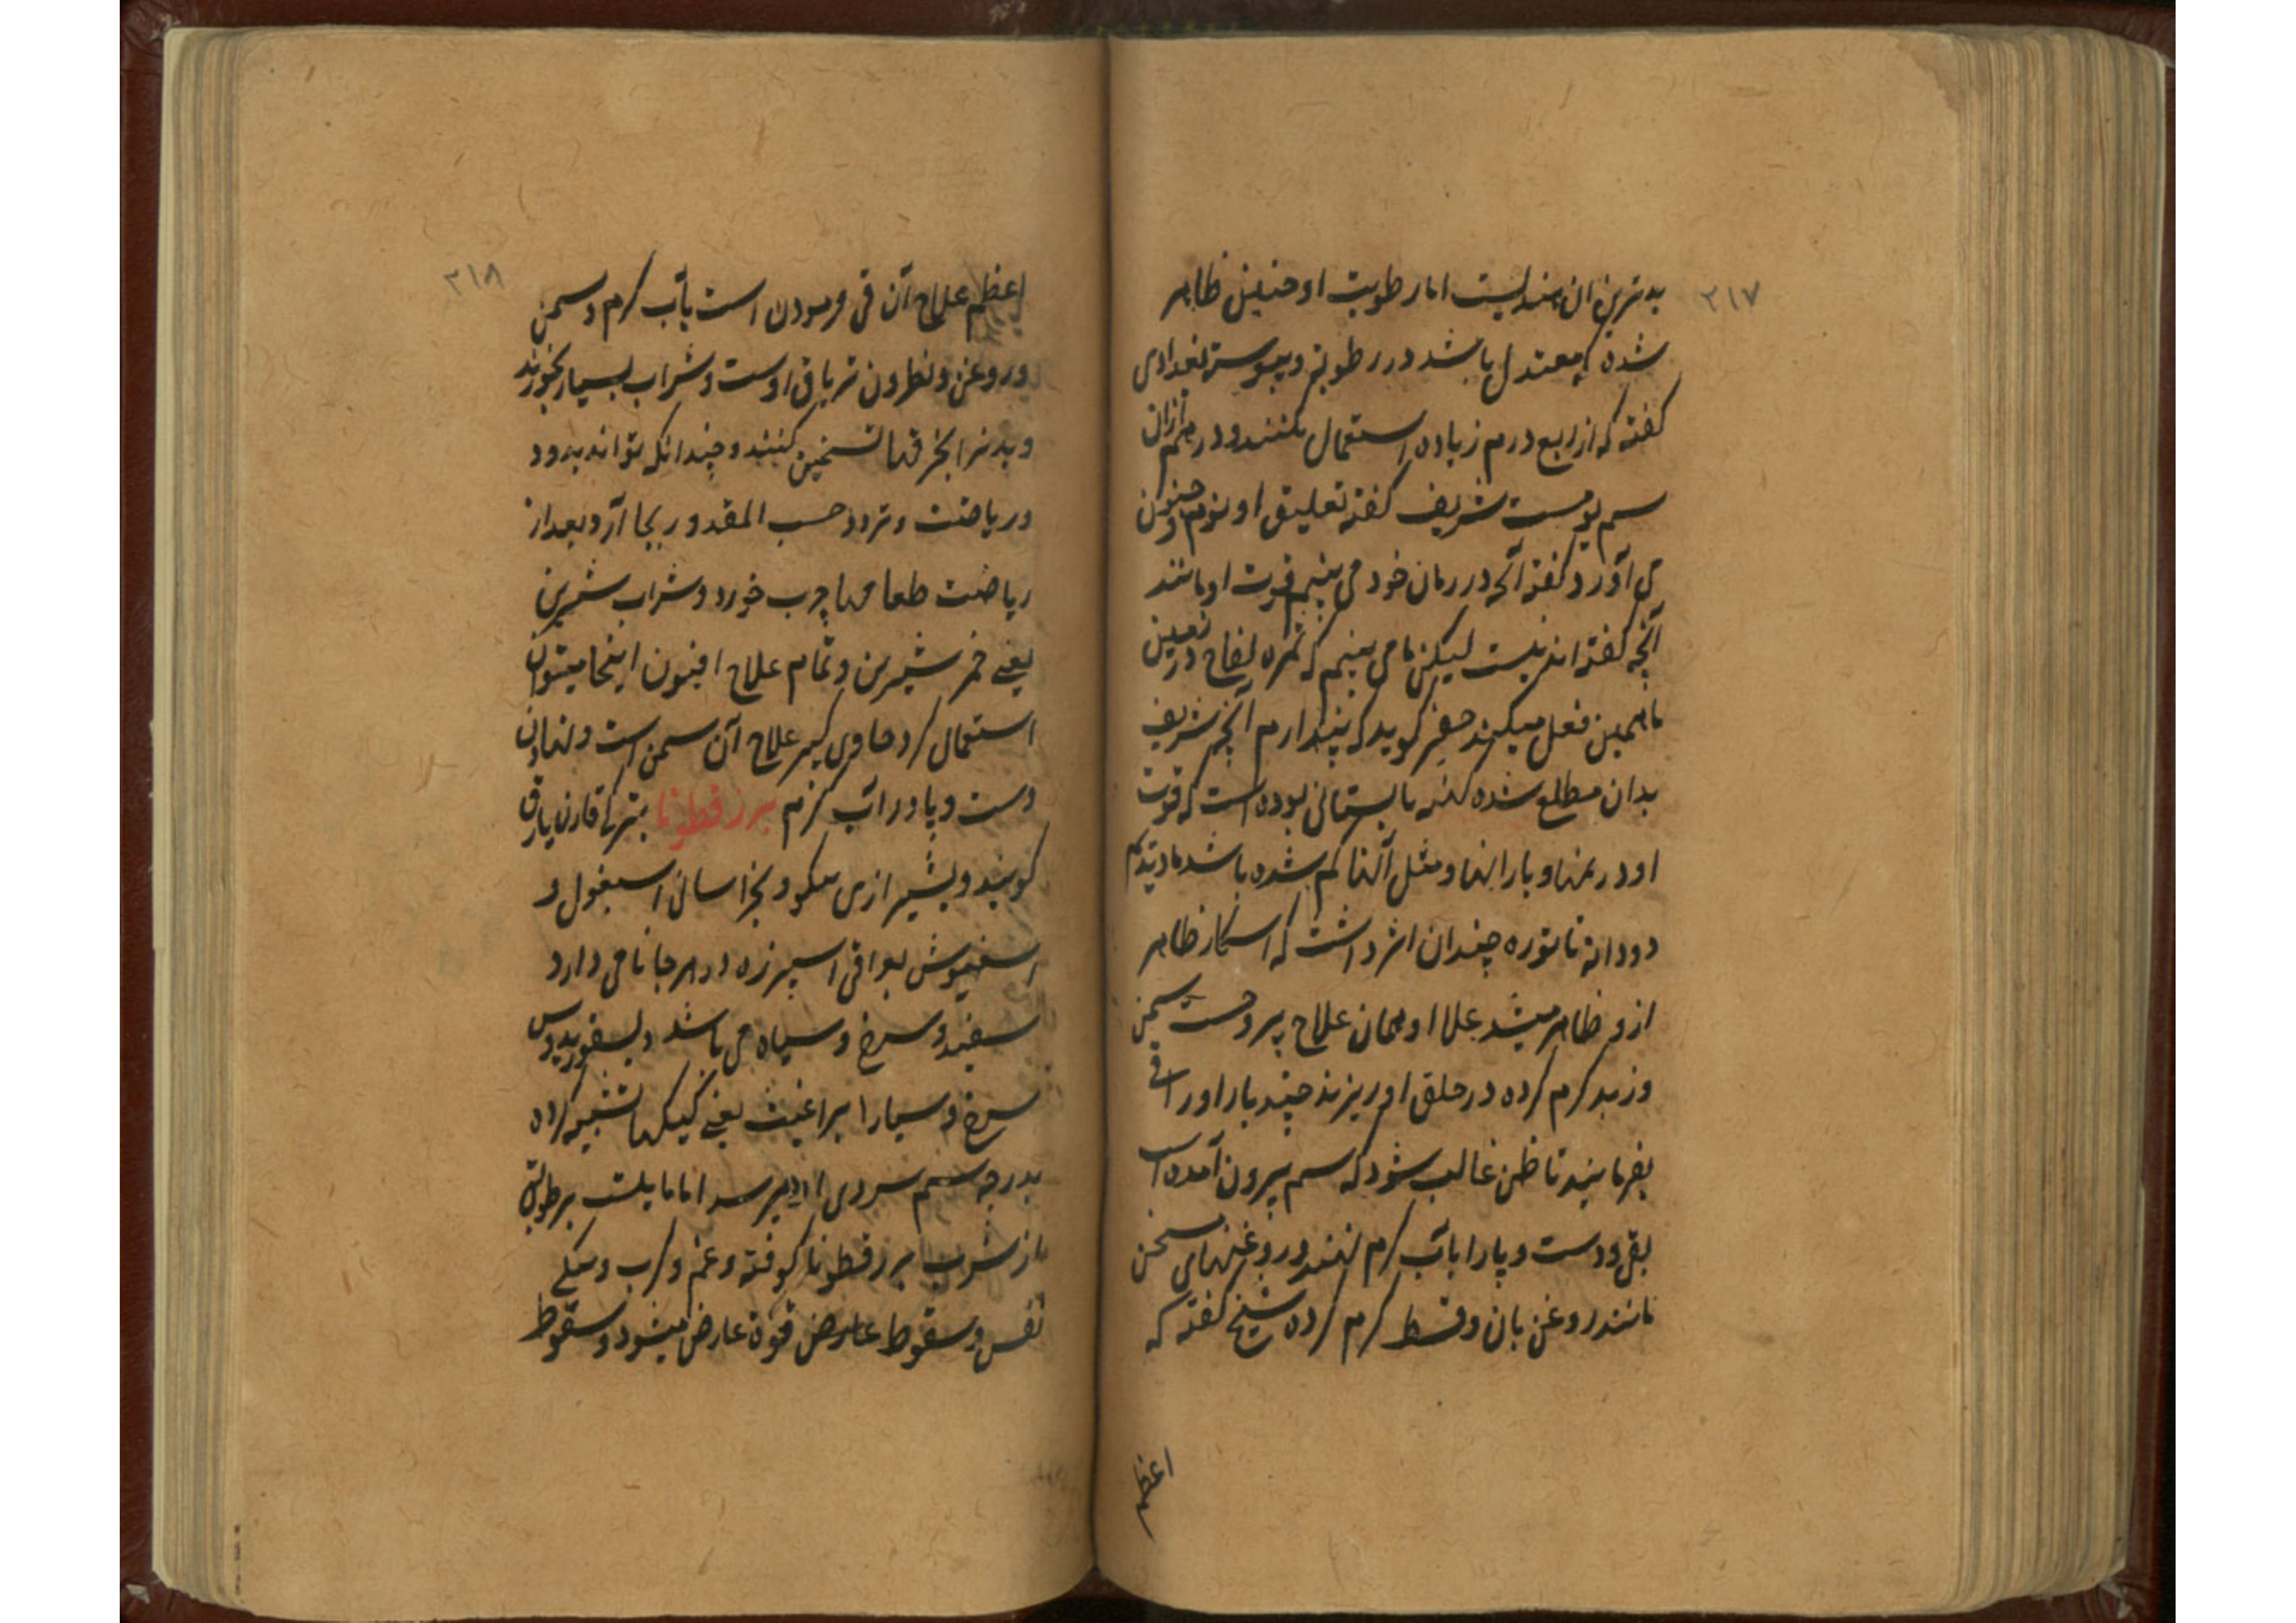 ۲۱۷
بدترین ان هندیست اما رطوبت او چنین ظاهر
شده که معتدل باشد در رطوبة و یبوست بغدادی
کفته که از ربع درم زیاده استعمال نکنند و درهم ازان
سم یوست شریف کفته تعلیق او نوم و جنون
می آورد و کفته آنچه در زمان خود می بینم قوت او مانند
آنچه کفته اند نیست لیکن ما می بینیم که ثمره لفاح در زمین
ما همین فعل میکند حقیر کوید که پندارم آنچه شریف
بدان مطلع شده کهنه یا بستانی بوده است که قوت
او در نمها و بارانها و مثل آنها کم شده باشد ما دیدیم
دو دانه تاتوره چندان اثر داشت که اسکار ظاهر
ازو ظاهر میشد علاا و همان علاج یبروحست سمن
و زبد کرم کرده در حلق او ریزند چند بار او را قی
بفرمایند تا ظن غالب شود که سم بیرون آمده است
بقی و دست و پا را باب کرم نهند و روغنهای مسخن
مانند روغن بان و قسط کرم کرده شیخ کفته که
اعظم
۲۱۸
اعظم علاج آن قی فرمودن است بآب کرم و سمن
و روغن و نطرون تریاق اوست و شراب بسیار بخورند
و بدنرا بخرقها تسخین کنند و چندانکه تواند بدود
و ریاضت و تردد حسب المقدور بجا آرد بعد از
ریاضت طعامها چرب خورد و شراب شیرین
یعنی خمر شیرین و تمام علاج افیون اینجا میتوان
استعمال کرد حاوی کبیر علاج آن سمن است و نهادن
دست و پا در اب کرم بزر قطونا بترکی قارن یارق
کویند و بشیرازی بنکو و بخراسانی اسبغول و
اسفیوش بعراقی اسپرزه در هرجا نامی دارد
سفید و سرخ و سیاه می باشد و
سرخ و سیارا براغیث یعنی کیکها تشبیه کرده
بدرجه سیم سردی او میرسد اما مایلست برطوبتی
از شرب بزر قطونا کوفته و غم و کرب و تنکی
نفس و سقوط عارض قوة عارض میشود و سقوط